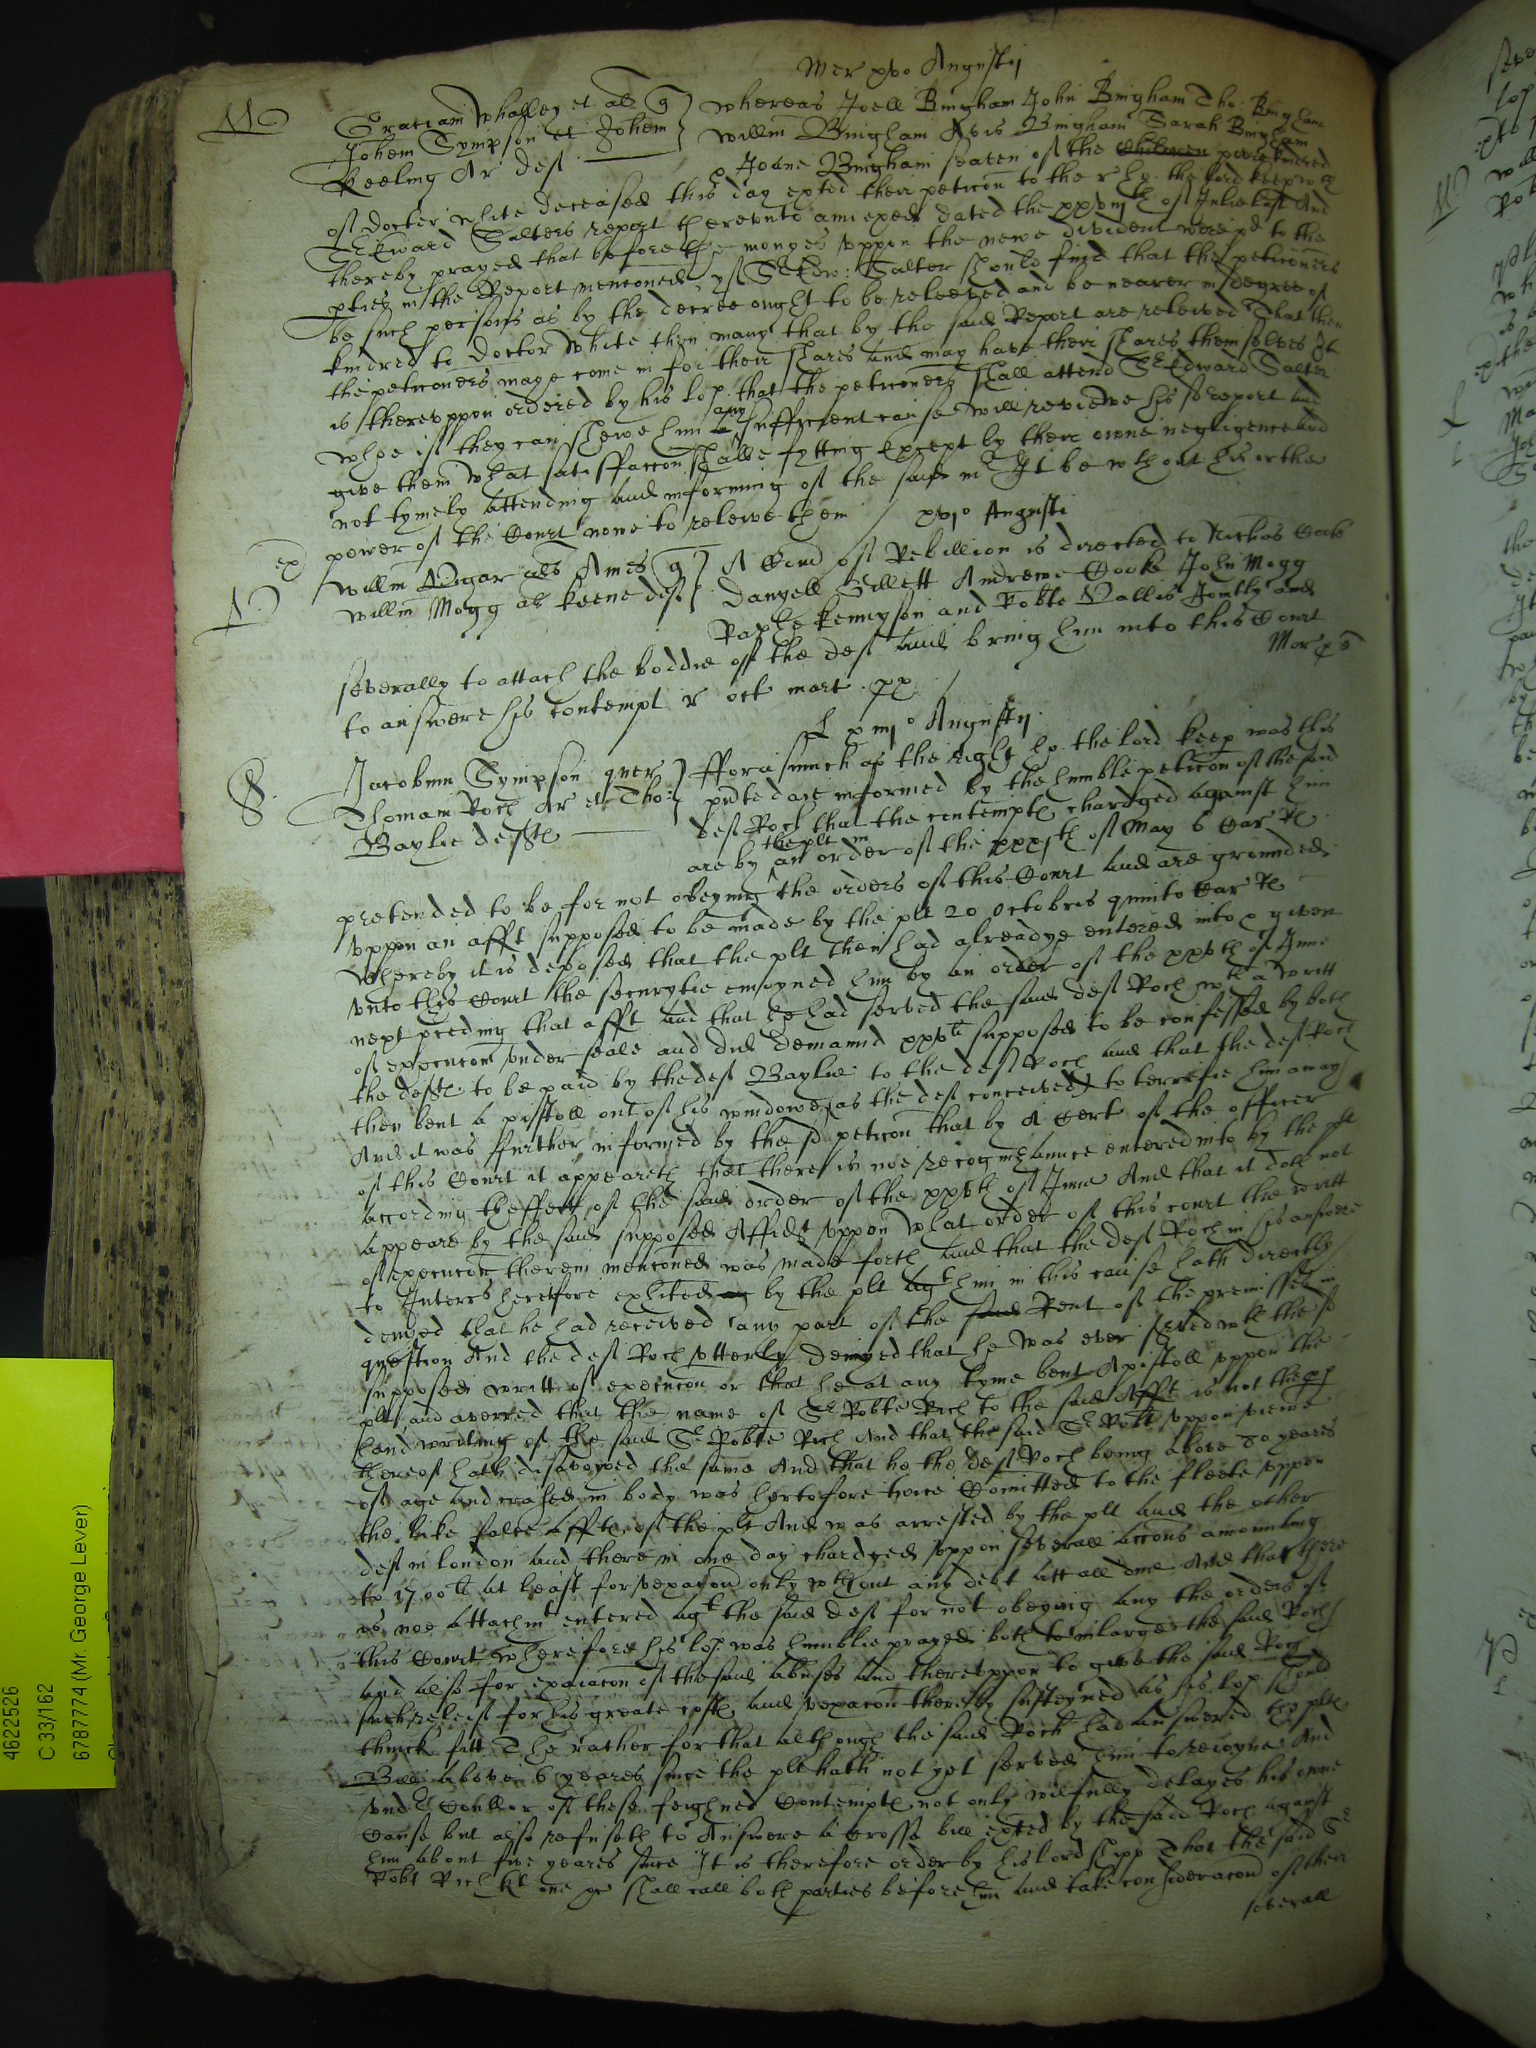 Mer xvo Augustij
M
Gratiam Whalley et als q
Johem Sympson et Johem
Keeling Ar def
whereas Joell Bingham John Bingham Tho: Bingham
Willm Bingham Avis Bingham Sarah Bingham
Joane Bingham seaven of the children poore kinred
of Doctor White deceased this day exted their peticon to the r ho. the lord keep wth
Sr Edward Salters report therevnto annexed dated the of Julie last And
thereby prayed that before the monyes vppon the newe divident were pd to the
pties in the Report menconed yf Sr Edw: Salter should find that the peticoners
be such persons as by the decree ought to be releeved and be nearer in degree of
kindred to Doctor White then many that by the said Report are releived That then
the peticoners maye come in for their shares and may have their shares themselves It
is therevppon ordered by his lop. that the peticoners shall attend Sr Edward Salter
whoe if they can shewe him any sufficient cause will reviewe his report and
give them what satisffaccon shalbe fytting Except by their owne negligence and
not tymely attending and informing of the said mr It be wthout his or the
power of the Court nowe to releive them / xvjo Augusti
ex
A
Willm Agar als Ames q
Willm Mogg als Keene def
A Comd of Rebellion is directed to Nichas Cooke
Danyell Gillett Andrewe Cooke John Mogg
Raphe Kennyson and Robte Vallis Jointly and
severally to attach the boddie of the def and bring him into this Court
to answere his contempt r oct mart . px
Mar
xiijo Augustij
S
Jacobum Sympson quer
Thomam Roch Ar et Tho:
Baylie defte
Fforasmuch as the right ho. the lord keep was this
pnte daie informed by the humble peticon of the said
def Roch that the contempte chardged against him
are by the plt in an order of the xxxjth of May 6 Car Re
pretended to be for not obeying the orders of this Court and are grounded
vppon an afft supposed to be made by the plt 20 Octobris quinto Car Re
Whereby it is deposed that the plt then had alreadye entered into & given
vnto this Court the securytie enioyned him by an order of the xxvth of June
next pceding that afft and that he had served the said def Roch wth a writt
of execucon vnder seale and did demaund xxvli supposed to be confessed by both
the defte to be paid by the def Baylie to the def Roch and that the def Roch
then bent a pistoll out of his windowe (as the def conceived) to terrefie him away
And it was further informed by the sd peticon that by A Cert of the officer
of this Court it appeareth that there is noe recognizaunce entered into by the plt
according theffect of the said order of the xxvth of June And that it doth not
appeare by the said supposed Affidt vppon what order of this court the writt
of execucon therein menconed was made forth and that the def Roch in his answere
to Interrs heretofore exhited by the plt agt him in this cause hath directly
denyed that he had received any part of the said Rent of the premisses in
question And the def Roch vtterly denyed that he was ever served wth the sd
supposed writt of execucon or that he at any tyme bent A pistoll vppon the
plt and averred that the name of Sr Robte Rich to the said Afft is not the
hand writing of the said Sr Robte Rich And that the said Sr Robte vppon viewe
thereof hath disavowed the same And that he the def Roch being above 80 yeares
of age and crased in body was hertofore twice Comitted to the fleete vppon
the like false affts of the plt And was arrested by the plt and the other
def in London and there in one day chardged vppon severall accons amounting
to 1700li at least for vexacon only wthout any debt att all due And that there
is noe attachmt entered agt the said def for not obeying any the orders of
this Court Wherefore his lop. was humblie prayed both to inlarge the said Roch
and also for expiacon of the said abuses and therevppon to give the said Roch
such releif for his greate costs and vexacon thereby susteyned as his lop should
thinck fitt The rather for that although the said Roch had answered the plte
Bill above 6 yeares since the plt hath not yet served him to reioyne And
vnder Coullor of these feighned Contempte not only wilfully delayes his owne
Cause but also refuseth to Answere a Crosse bill exted by the said Roch against
him about five yeares since It is therefore order by his lordshipp That the said Sr
Robt Rich kt one &c shall call both parties before him and take consideracon of their
severall
4622526
C 33/162
6787774 (Mr. George Lever)